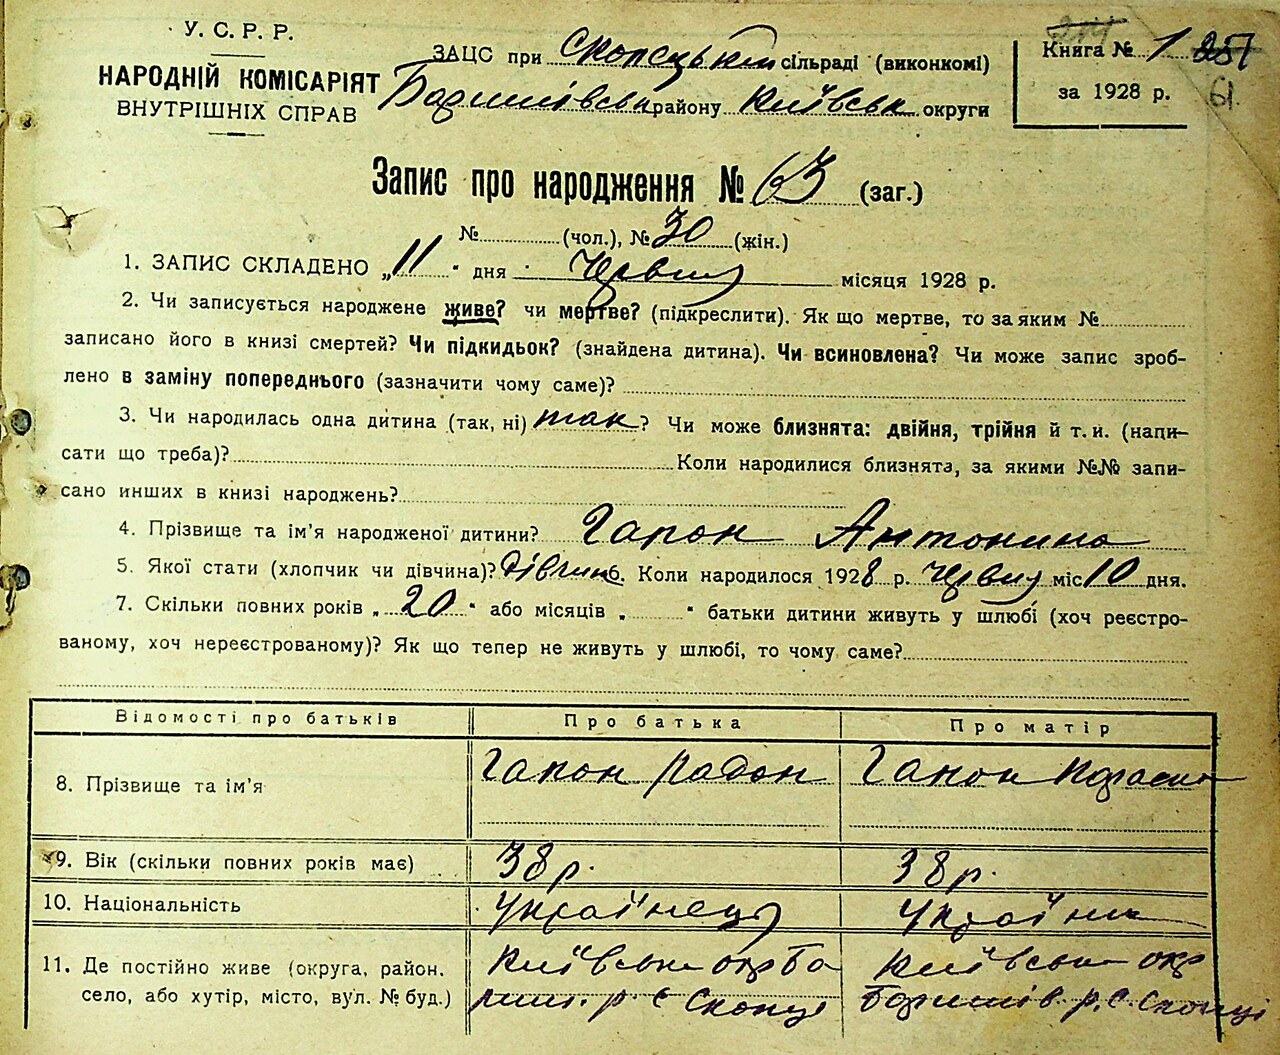 У. С. Р. Р.
НАРОДНІЙ КОМІСАРІЯТ
ВНУТРІШНІХ СПРАВ
ЗАЦС при Скопецькій сільраді (виконкомі)
Баришівськ району Київськ округи
Книга № 1
за 1928 р.
61
Запис про народження № 63 (заг.)
№ (чол.), № 30 (жін.)
1. ЗАПИС СКЛАДЕНО „11" дня Червня місяця 1928 р.
2. Чи записується народжене живе? чи мертве? (підкреслити). Як що мертве, то за яким №
записано його в книзі смертей? Чи підкидьок? (знайдена дитина). Чи всиновлена? Чи може запис зроб-
лено в заміну попереднього (зазначити чому саме)?
3. Чи народилась одна дитина (так, ні) так? Чи може близнята: двійня, трійня й т. и. (напи-
сати що треба)? Коли народилися близнята, за якими №№ запи-
сано инших в книзі народжень?
4. Прізвище та ім'я народженої дитини? Гапон Антонина
5. Якої стати (хлопчик чи дівчина)? дівчина. Коли народилося 1928 р. Червня міс 10 дня.
7. Скільки повних років „20" або місяців „ " батьки дитини живуть у шлюбі (хоч реєстро-
ваному, хоч нереєстрованому)? Як що тепер не живуть у шлюбі, то чому саме?
Відомості про батьків Про батька Про матір
8. Прізвище та ім'я Гапон Радон Гапон
9. Вік (скільки повних років має) 38 р. 38 р.
10. Національність Українець Українк
11. Де постійно живе (округа, район. Київськ окр Ба Київськ окр
село, або хутір, місто, вул. № буд.) риш. р. с Скопці Баришів. р. с. Скопці